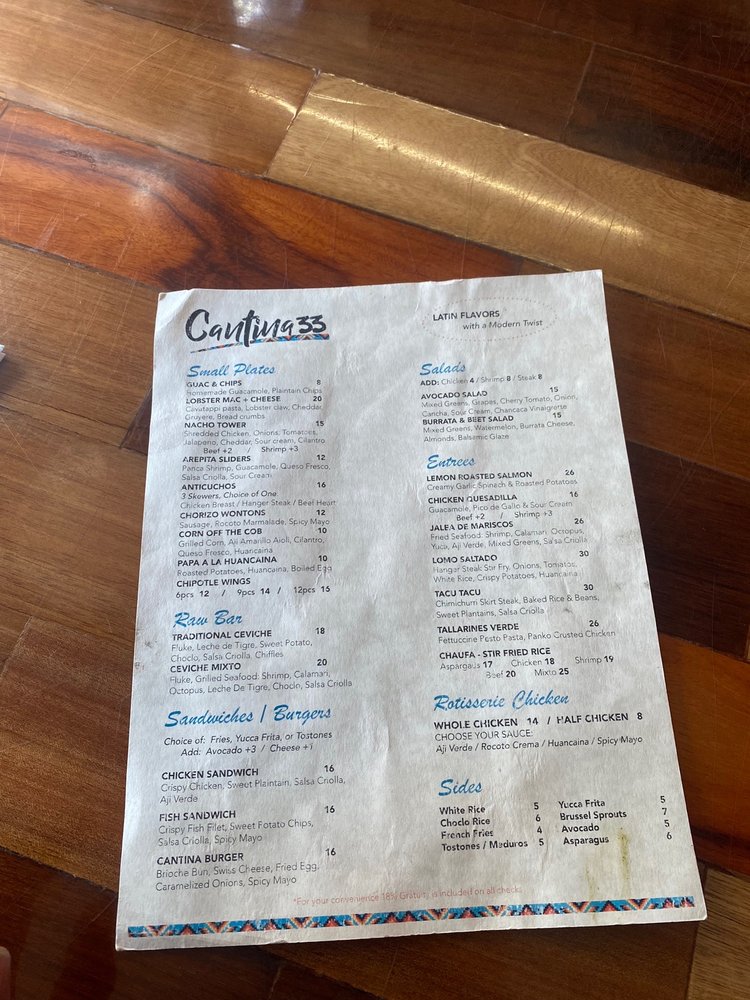 Cantina33
LATIN FLAVORS
with a Modern Twist
Small Plates
GUAC & CHIPS 8
Homemade Guacamole, Plantain Chips
LOBSTER MAC + CHEESE 20
Cavatappi pasta, Lobster claw, Cheddar,
Gruyere, Bread crumbs
NACHO TOWER 15
Shredded Chicken, Onions, Tomatoes,
Jalapeno, Cheddar, Sour cream, Cilantro
Beef +2 / Shrimp +3
AREPITA SLIDERS 12
Panca Shrimp, Guacamole, Queso Fresco,
Salsa Criolla, Sour Cream
ANTICUCHOS 16
3 Skewers, Choice of One
Chicken Breast / Hanger Steak / Beef Heart
CHORIZO WONTONS 12
Sausage, Rocoto Marmalade, Spicy Mayo
CORN OFF THE COB 10
Grilled Corn, Aji Amarillo Aioli, Cilantro,
Queso Fresco, Huancaina
PAPA A LA HUANCAINA 10
Roasted Potatoes, Huancaina, Boiled Egg
CHIPOTLE WINGS
6pcs 12 / 9pcs 14 / 12pcs 16
Raw Bar
TRADITIONAL CEVICHE 18
Fluke, Leche de Tigre, Sweet Potato,
Choclo, Salsa Criolla, Chiffles
CEVICHE MIXTO 20
Fluke, Grilled Seafood: Shrimp, Calamari,
Octopus, Leche De Tigre, Choclo, Salsa Criolla
Sandwiches | Burgers
Choice of: Fries, Yucca Frita, or Tostones
Add: Avocado +3 / Cheese +1
CHICKEN SANDWICH 16
Crispy Chicken, Sweet Plaintain, Salsa Criolla,
Aji Verde
FISH SANDWICH 16
Crispy Fish Filet, Sweet Potato Chips,
Salsa Criolla, Spicy Mayo
CANTINA BURGER 16
Brioche Bun, Swiss Cheese, Fried Egg,
Caramelized Onions, Spicy Mayo
Salads
ADD: Chicken 4 / Shrimp 8 / Steak 8
AVOCADO SALAD 15
Mixed Greens, Grapes, Cherry Tomato, Onion,
Cancha, Sour Cream, Chancaca Vinaigrette
BURRATA & BEET SALAD 15
Mixed Greens, Watermelon, Burrata Cheese,
Almonds, Balsamic Glaze
Entrees
LEMON ROASTED SALMON 26
Creamy Garlic Spinach & Roasted Potatoes
CHICKEN QUESADILLA 16
Guacamole, Pico de Gallo & Sour Cream
Beef +2 / Shrimp +3
JALEA DE MARISCOS 26
Fried Seafood: Shrimp, Calamari, Octopus,
Yuca, Aji Verde, Mixed Greens, Salsa Criolla
LOMO SALTADO 30
Hangar Steak Stir Fry, Onions, Tomatoes,
White Rice, Crispy Potatoes, Huancaina
TACU TACU 30
Chimichurri Skirt Steak, Baked Rice & Beans,
Sweet Plantains, Salsa Criolla
TALLARINES VERDE 26
Fettuccine Pesto Pasta, Panko Crusted Chicken
CHAUFA - STIR FRIED RICE
Aspargaus 17 Chicken 18 Shrimp 19
Beef 20 Mixto 25
Rotisserie Chicken
WHOLE CHICKEN 14 / HALF CHICKEN 8
CHOOSE YOUR SAUCE:
Aji Verde / Rocoto Crema / Huancaina / Spicy Mayo
Sides
White Rice 5
Choclo Rice 6
French Fries 4
Tostones / Maduros 5
Yucca Frita 5
Brussel Sprouts 7
Avocado 5
Asparagus 6
*For your convenience 18% Gratuity is included on all checks